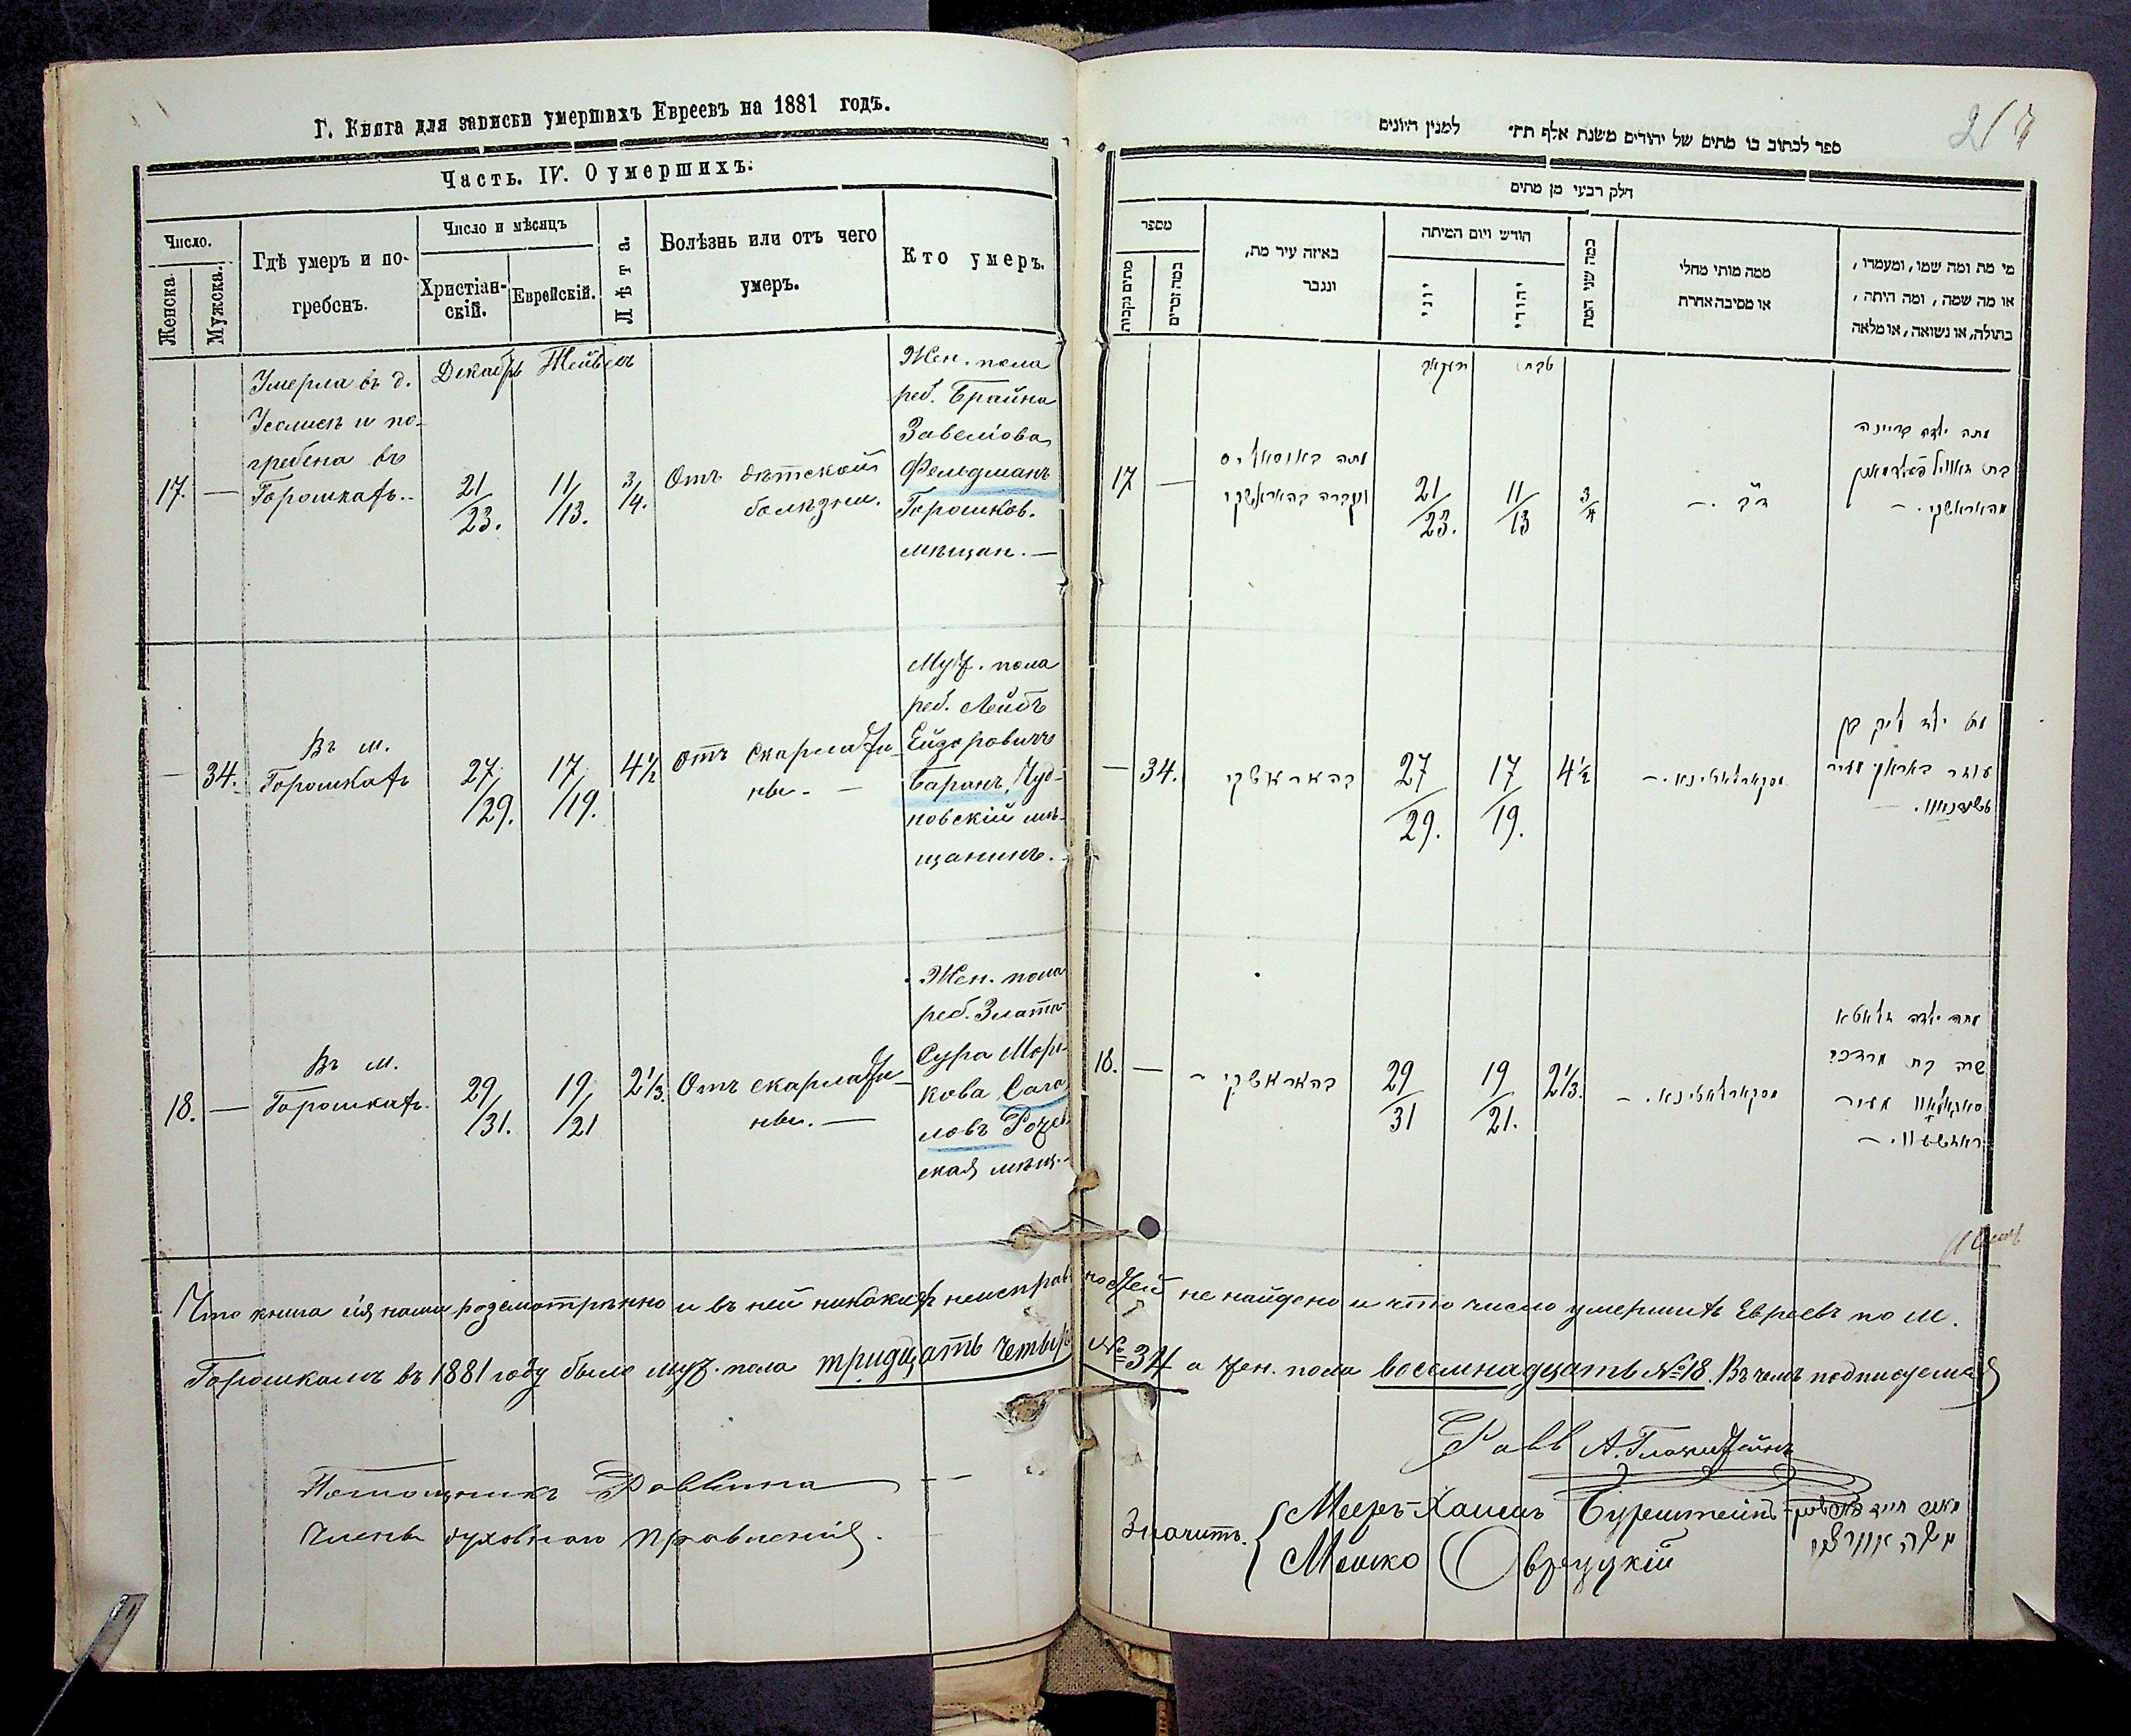 Г. Книга для записки умершихъ Евреевъ на 1881 годъ.
Часть. IV. О умершихъ.
Число.
Женска.
Мужска.
Гдѣ умеръ и по-
гребенъ.
Число и мѣсяцъ
Христіан-
скій.
Еврейскій.
Лѣта.
Болѣзнь или отъ чего
умеръ.
Кто умеръ.
Декабрь Тейвесъ
17. —
Умерла въ д.
и по-
гребена въ
Горошкахъ.
21/23.
11/13.
3/4.
Отъ дѣтской
болѣзни.
Жен. пола
реб. Брайна
Завелiова
Фельдманъ
Горошков.
мѣщан. —
— 34.
Въ м.
Горошкахъ
27/29.
17/19.
4½
отъ скарлати-
ны. —
Муж. пола
реб. Лейбъ
Ейзоровичъ
Баранъ, Чуд-
новскій мѣ-
щанинъ.
18. —
Въ м.
Горошкахъ.
29/31.
19/21
2⅓.
Отъ скарлати-
ны. —
Жен. пола
реб. Злата-
Сура Морт-
кова
ская мѣщ.
ספר לכתוב בו מתים של יהודים משנת אלף תת״ למנין היונים
חלק רבעי מן מתים
מספר
מתים נקבות
כמה זכרים
באיזה עיר מת,
ונגבר
חודש ויום המיתה
יוני
יהודי
כמה שני המת
ממה מותי מחלי
או מסיבה אחרת
מי מת ומה שמו, ומעמדו,
או מה שמה, ומה היתה,
בתולה, או נשואה, או מלאה
טבת
17 —
מתה
וקברה בהאראשקי
21/23.
11/13
3/4
מתה ילדה בריינה
בת זאוויל פעלדמאן
מהאראשקי. —
— 34.
בהאראשקי
27/29.
17/19.
4½
סקארלאטינא. —
מת ילד ליב בן
באראן מעיר
18. —
בהאראשקי —
29/31
19/21.
2⅓.
סקארלאטינא. —
מתה ילדה זלאטא
שרה בת מרדכי
מעיר
Что книга сія нами розсмотрѣнно и въ ней никакихъ неисправностей не найдено и что число умершихъ Евреевъ по м.
Горошкамъ въ 1881 году было муж. пола тридцать четыре № 34 а жен. пола восемнадцать № 18. Въ чемъ подписуемся
Равв А.
Помощникъ Раввина — —
Члены духовнаго правленія.
Значитъ.
Мееръ-Хаимъ Буренштейнъ
Мошко Овруцкій